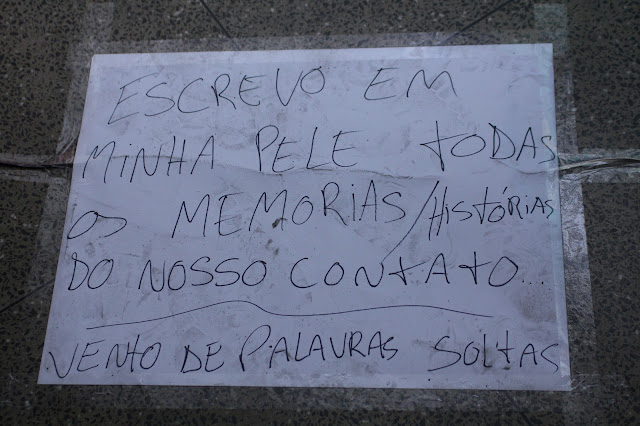 ESCREVO EM
MINHA PELE TODAS
OS MEMORIAS/HISTÓRIAS
DO NOSSO CONTATO...
VENTO DE PALAVRAS SOLTAS